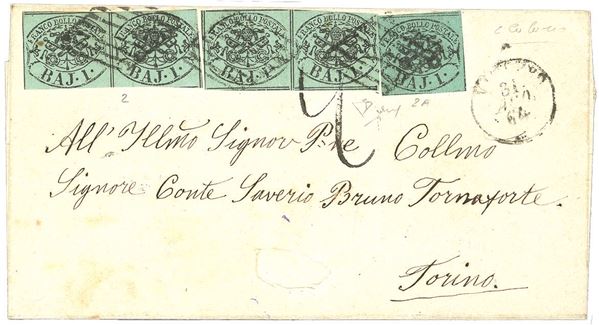 FRANCO BOLLO POSTALE FRANCO BOLLO POSTALE FRANCO BOLLO POSTALE FRANCO BOLLO POSTALE FRANCO BOLLO POSTALE
BAJ. 1. BAJ. 1. BAJ. 1. BAJ. 1. BAJ. 1.
2
2A
64
All' Illmo Signor P.ne Collmo
Signore Conte Saverio Bruno Tornaforte.
Torino.